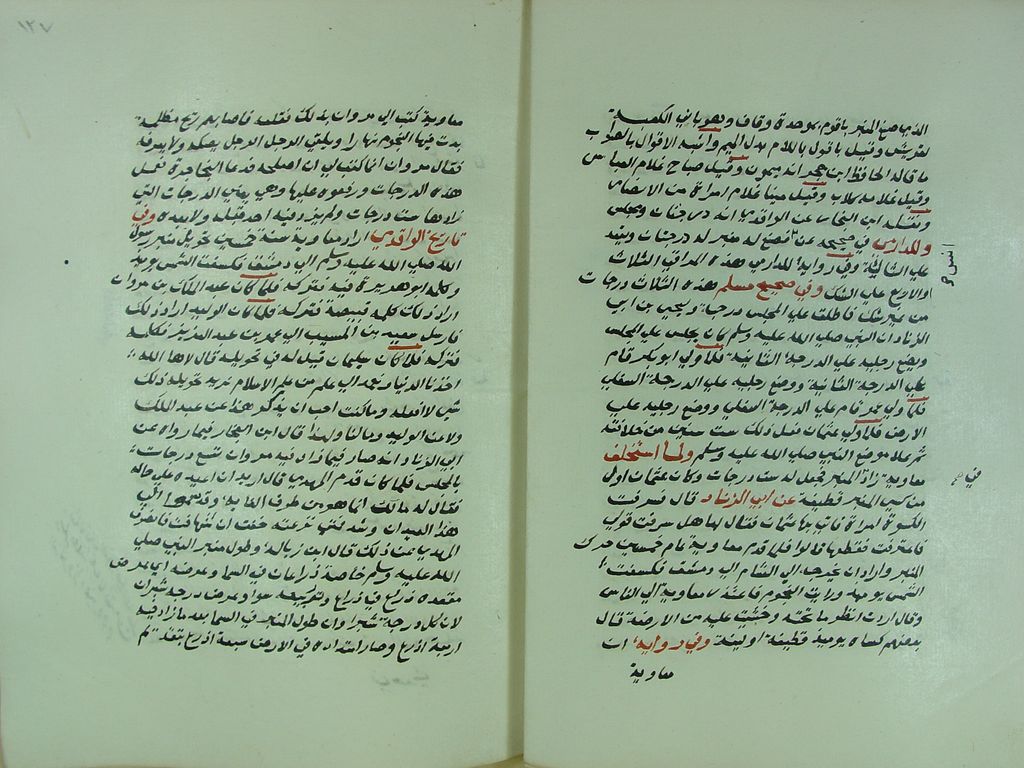 الذي صنع المنبر باقوم بموحدة وقاف وهو باني الكعبة
لقريش وقيل باقول باللام بدل الميم واشبه الاقوال بالصواب
ما قاله الحافظ ابن حجر انه ميمون وقيل صباح غلام العباس
وقيل غلامه كلاب وقيل مينا غلام امراة من الانصار
ونقله ابن النجار عن الواقدي انه درجتان ومجلس
وللدارمي في صحيحه عن انس فصنع له منبر له درجتان ويقعد
علي الثالثة وفي رواية للدارمي هذه المراقي الثلاث
او الاربع علي الشك وفي صحيح مسلم هذه الثلاث درجات
من غير شك فاطلق علي المجلس درجة ويحيي بن ابي
الزناد ان النبي صلي الله عليه وسلم كان يجلس علي المجلس
ويضع رجليه علي الدرجة الثانية فلما ولي ابو بكر قام
علي الدرجة الثانية ووضع رجليه علي الدرجة السفلي
فلما ولي عمر قام علي الدرجة السفلي ووضع رجليه علي
الارض فلما ولي عثمان فعل ذلك ست سنين من خلافته
ثم علا موضع النبي صلي الله عليه وسلم ولما استخلف
معاوية زاد المنبر فجعل له ست درجات وكان عثمان اول
من كسي المنبر قطيفة عن ابي الزناد قال فسرقت
الكسوة امراة فاتي بها عثمان فقال لها هل سرقت قولي لا
فاعترفت فقطعها قالوا فلما قدم معاوية عام خمسين حرك
المنبر واراد ان يخرجه الي الشام الي دمشق فكسفت
الشمس يوميذ ورايت النجوم فاعتذر معاوية الي الناس
وقال اردت انظر ما تحته وخشيت عليه من الارضة قال
بعضهم كساه يوميذ قطيفة او لينة وفي رواية ان
معاوية
في
١٢٧
معاوية كتب الي مروان بذلك فقلعه فاصابهم ريح مظلمة
بدت فيها النجوم نهارا ويلقي الرجل الرجل يصكه ولا يعرفه
فقال مروان انما كتب الي ان اصلحه فدعا النجاجرة فعمل
هذه الدرجات ورفعوه عليها وهي يعني الدرجات التي
زادها ست درجات ولم يزد فيه احد قبله ولا بعده وفي
تاريخ الواقدي اراد معاوية سنة خمسين تحويل منبر رسول
الله صلي الله عليه وسلم الي دمشق فكسفت الشمس يوميذ
وكلمه ابو هريرة فيه فتركه فلما كان عبد الملك بن مروان
اراد ذلك كلمه قبيصة فتركه فلما كان الوليد اراد ذلك
فارسل سعيد بن المسيب الي عمر بن عبد العزيز فكلمه
فتركه فلما كان سليمان قيل له في تحويله قال لاها الله
اخذنا الدنيا ونعمد الي علم من علم الاسلام نريد تحويله ذلك
شي لا افعله وما كنت احب ان يذكر هذا عن عبد الملك
ولا عن الوليد ومالنا ولهذا قال ابن النجار فيما رواه عن
ابي الزناد انه صار فيما زاد فيه مروان تسع درجات
بالمجلس فلما كان قدم المهدي قال اريد ان اعيده علي حاله
فقال له مالك انما هو من طرفا الغابة وقد سمر الي
هذا العيدان وشد فمتي نزعته خفت ان يتهافت فانصرف
المهدي عن ذلك قال ابن زبالة وطول منبر النبي صلي
الله عليه وسلم خاصة ذراعان في السما وعرضه اي عرض
مقعده ذراع في ذراع وتربيعه سوا وعرض درجه شبران
لان كل درجة شبرا وان طول المنبر في السما بعد ما زاد فيه
اربعة اذرع وصار امتداده في الارض سبعة اذرع بتقديم